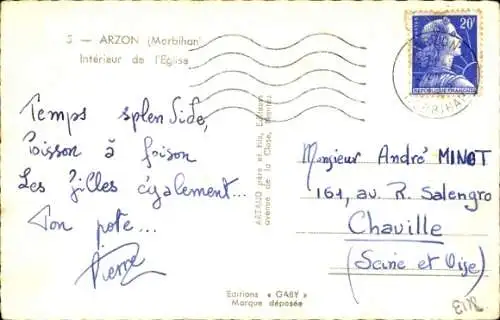 5 — ARZON (Morbihan)
Intérieur de l'Eglise
20F
POSTES
REPUBLIQUE FRANÇAISE
MORBIHAN
Temps splendide,
Poisson à foison
Les filles également...
Ton pote...
Pierre
ARTAUD père et fils, Editeurs
avenue de la Close, Nantes
Monsieur André MINOT
161, av. R. Salengro
Chaville
(Seine et Oise)
Editions « GABY »
Marque déposée